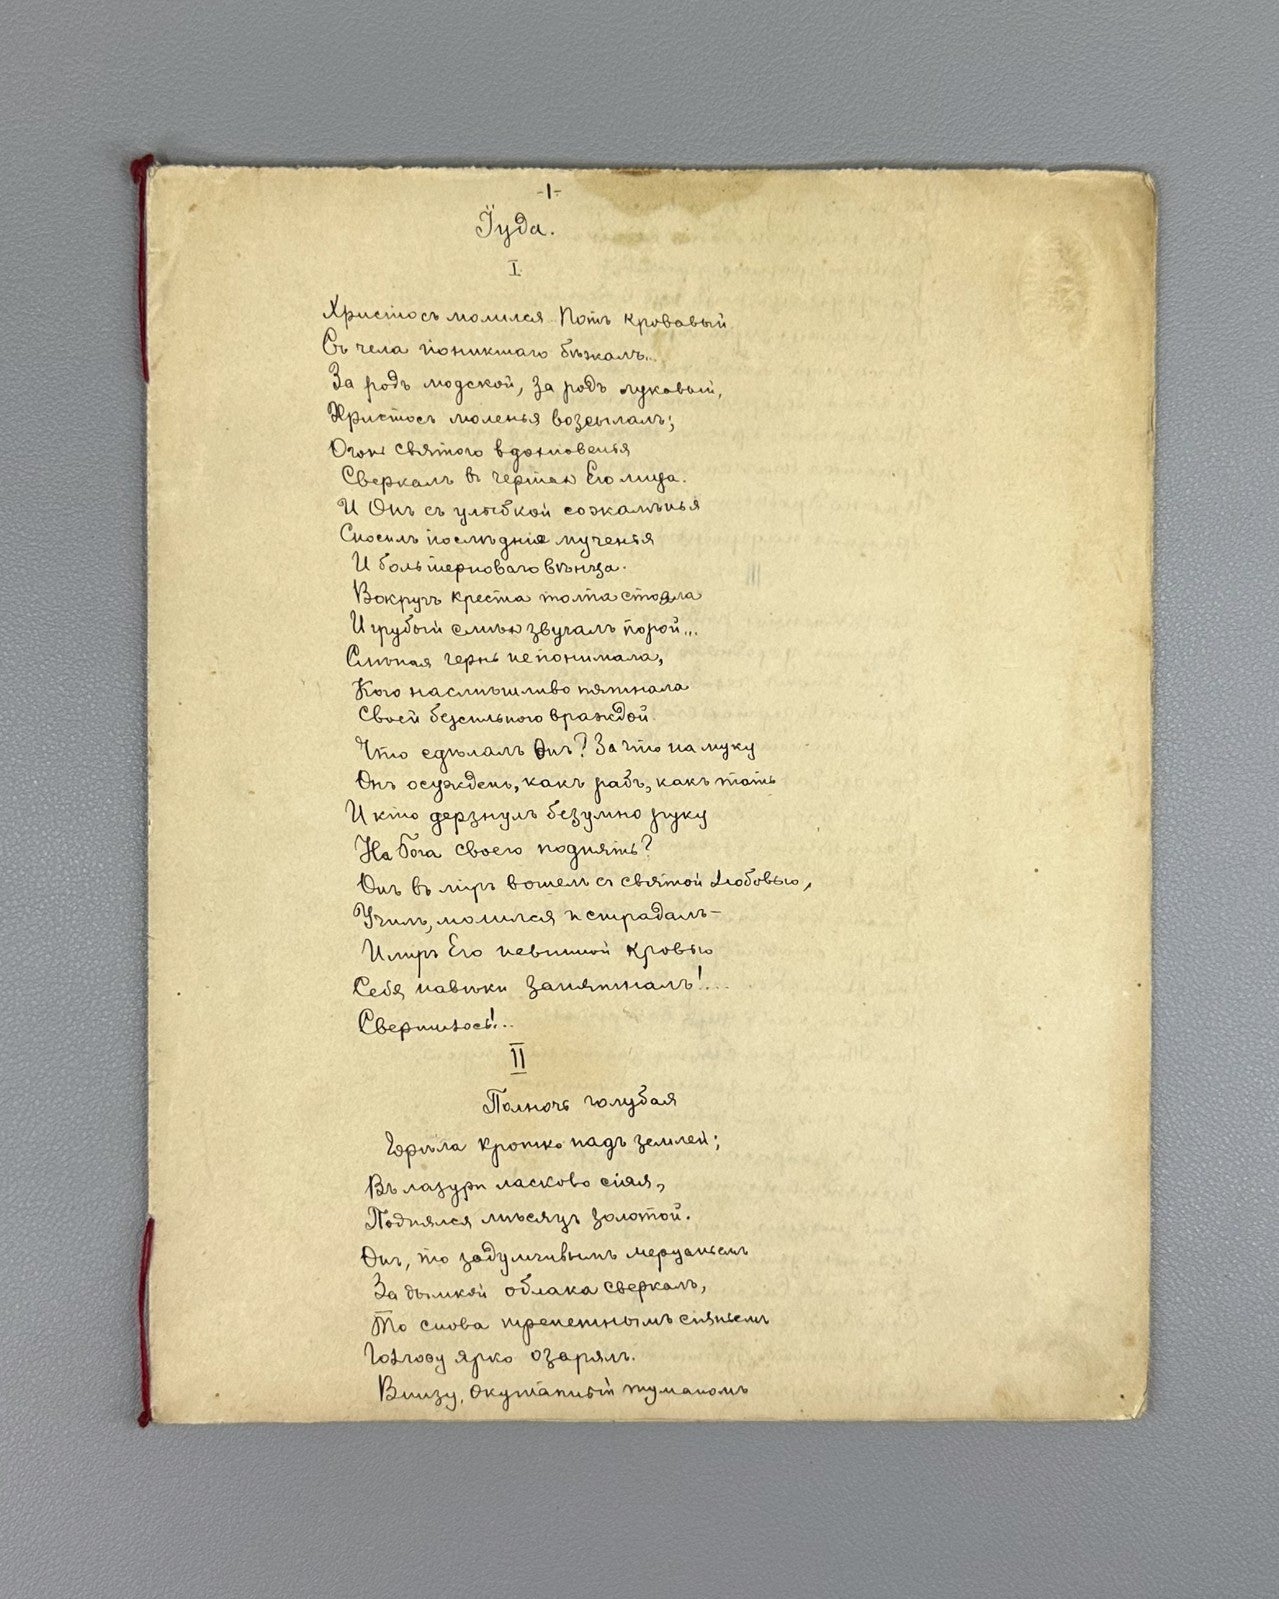 -1-
Іуда.
I
Христосъ молился.. Потъ кровавый
Съ чела поникшаго бѣжалъ...
За родъ людской, за родъ лукавый,
Христосъ моленья возсылалъ;
Огонь святого вдохновенья
Сверкалъ в чертах Его лица.
И Онъ съ улыбкой сожалѣнья
Сносилъ послѣднія мученья
И боль терноваго вѣнца.
Вокругъ креста толпа стояла
И грубый смѣх звучалъ порой...
Слѣпая чернь не понимала,
Кого насмѣшливо пятнала
Своей безсильного враждой.
Что сдѣлалъ Онъ? За что на муку
Онъ осужденъ, какъ рабъ, какъ тать
И кто дерзнулъ безумно руку
На Бога своего поднять?
Онъ въ міръ вошелъ съ святой любовью,
Училъ, молился и страдалъ—
И міръ Его невинной кровью
Себя навѣки запятналъ!...
Свершилось!...
II
Полночь голубая
Горѣла кротко надъ землей;
Въ лазури ласково сіяя,
Поднялся мѣсяцъ золотой.
Онъ, то задумчивымъ мерцаньемъ
За дымкой облака сверкалъ,
То снова трепетнымъ сіяньемъ
Голгофу ярко озарялъ.
Внизу, окутанный туманомъ